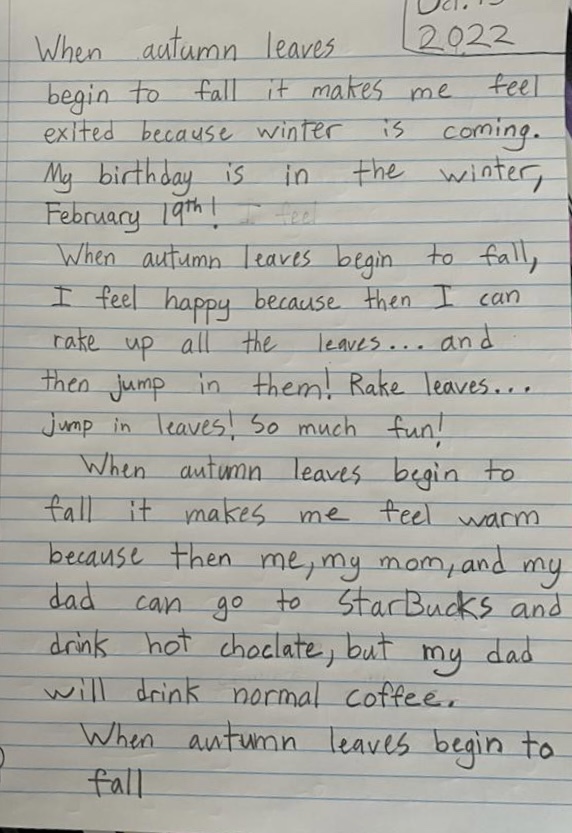 2022
When autumn leaves
begin to fall it makes me feel
exited because winter is coming.
My birthday is in the winter,
February 19th! I feel
When autumn leaves begin to fall,
I feel happy because then I can
rake up all the leaves... and
then jump in them! Rake leaves...
jump in leaves! So much fun!
When autumn leaves begin to
fall it makes me feel warm
because then me, my mom, and my
dad can go to StarBucks and
drink hot choclate, but my dad
will drink normal coffee.
When autumn leaves begin to
fall